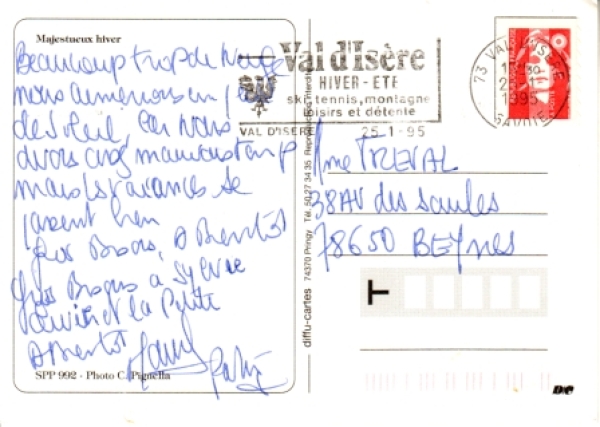 Majestueux hiver
Beaucoup trop de Neige
nous aimerions un
de Soleil, Car nous
avons mauvais temps
mais les vacances se
passent bien
Gros Bisous, A Bientôt
Gros Bisous a Sylvie
et la Petite
A Bientôt
SPP 992 - Photo C. Pignella
diffu-cartes 74370 Pringy Tél. 50.27 34 35 Reproduction interdite
Val d'Isère
HIVER - ETE
ski, tennis, montagne
loisirs et détente
VAL D'ISÈRE 25-1-95
73 VAL D'ISERE
1995
SAVOIE
Mme TREVAL
38 AV des saules
78650 BEYNES